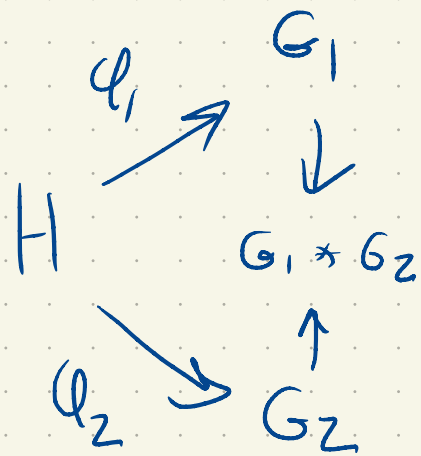 G₁
φ₁
H
G₁ * G₂
φ₂
G₂